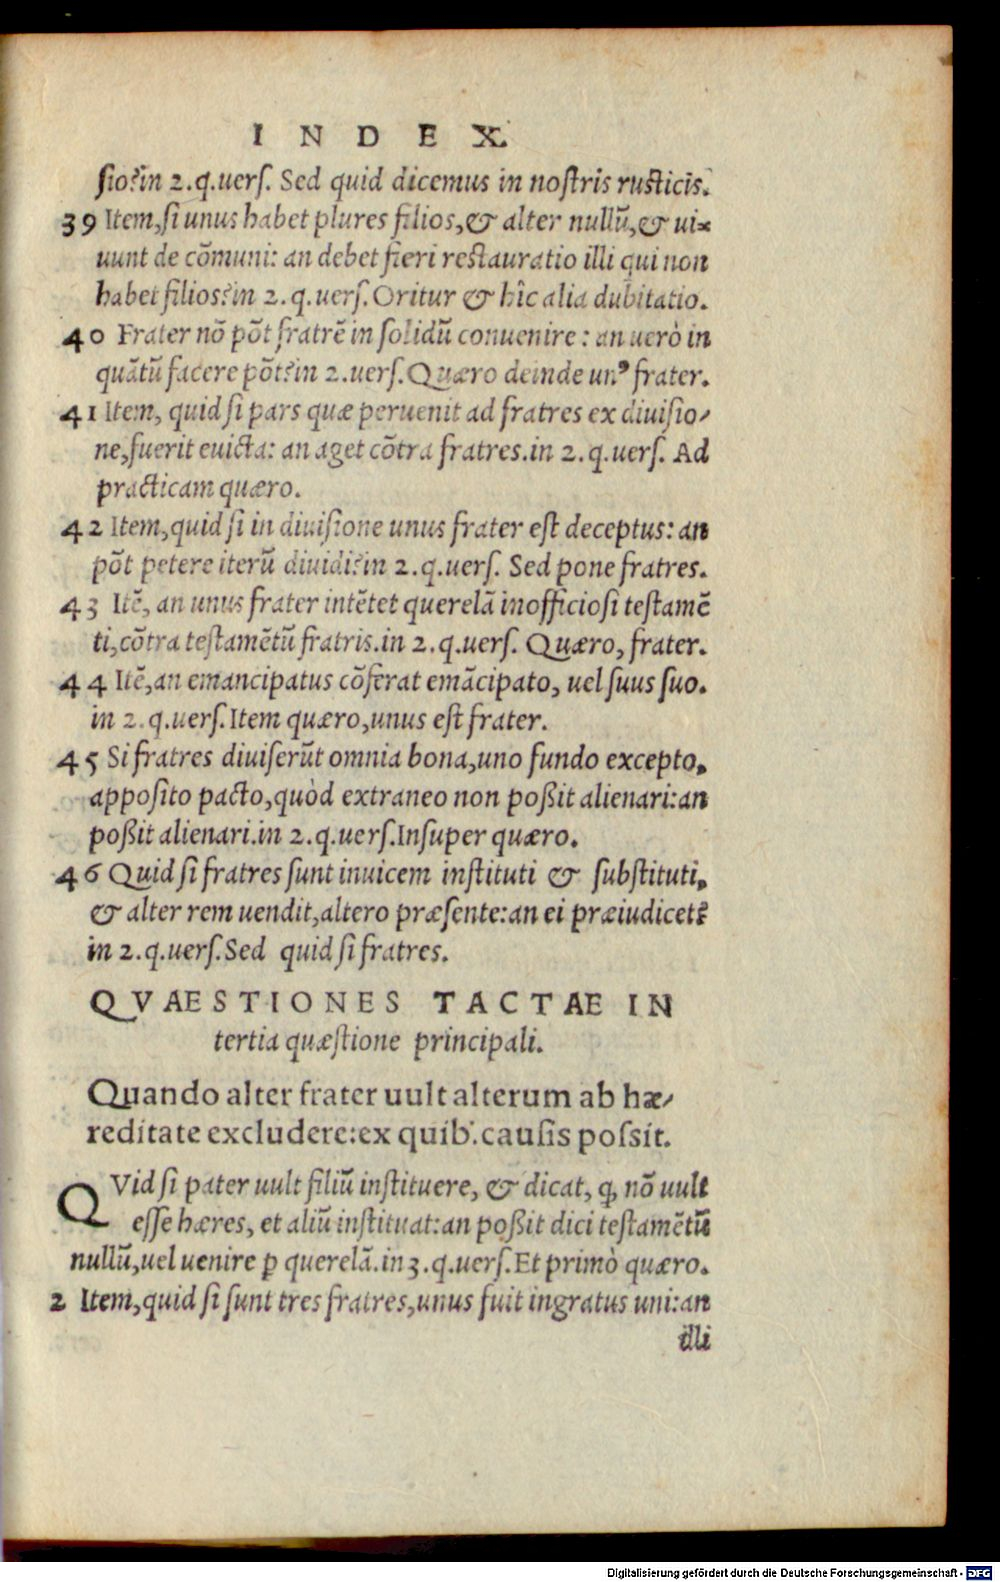 INDEX.
sio? in 2. q. vers. Sed quid dicemus in nostris rusticis.
39 Item, si unus habet plures filios, & alter nullũ, & ui-
uunt de cõmuni: an debet fieri restauratio illi qui non
habet filios? in 2. q. vers. Oritur & hîc alia dubitatio.
40 Frater nõ põt fratrẽ in solidũ conuenire: an uerò in
quãtũ facere põt? in 2. vers. Quæro deinde unꝰ frater.
41 Item, quid si pars quæ peruenit ad fratres ex diuisio-
ne, fuerit euicta: an aget cõtra fratres. in 2. q. vers. Ad
practicam quæro.
42 Item, quid si in diuisione unus frater est deceptus: an
põt petere iterũ diuidi? in 2. q. vers. Sed pone fratres.
43 Itẽ, an unus frater intẽtet querelã inofficiosi testamẽ
ti, cõtra testamẽtũ fratris. in 2. q. vers. Quæro, frater.
44 Itẽ, an emancipatus cõferat emãcipato, uel suus suo.
in 2. q. vers. Item quæro, unus est frater.
45 Si fratres diuiserũt omnia bona, uno fundo excepto,
apposito pacto, quòd extraneo non poßit alienari: an
poßit alienari. in 2. q. vers. Insuper quæro.
46 Quid si fratres sunt inuicem instituti & substituti,
& alter rem uendit, altero præsente: an ei præiudicet?
in 2. q. vers. Sed quid si fratres.
QVAESTIONES TACTAE IN
tertia quæstione principali.
Quando alter frater uult alterum ab hæ-
reditate excludere: ex quib'. causis possit.
QVid si pater uult filiũ instituere, & dicat, ꝙ nõ uult
esse hæres, et aliũ instituat: an poßit dici testamẽtũ
nullũ, uel uenire ꝑ querelã. in 3. q. vers. Et primò quæro.
2 Item, quid si sunt tres fratres, unus fuit ingratus uni: an
illi
Digitalisierung gefördert durch die Deutsche Forschungsgemeinschaft - DFG